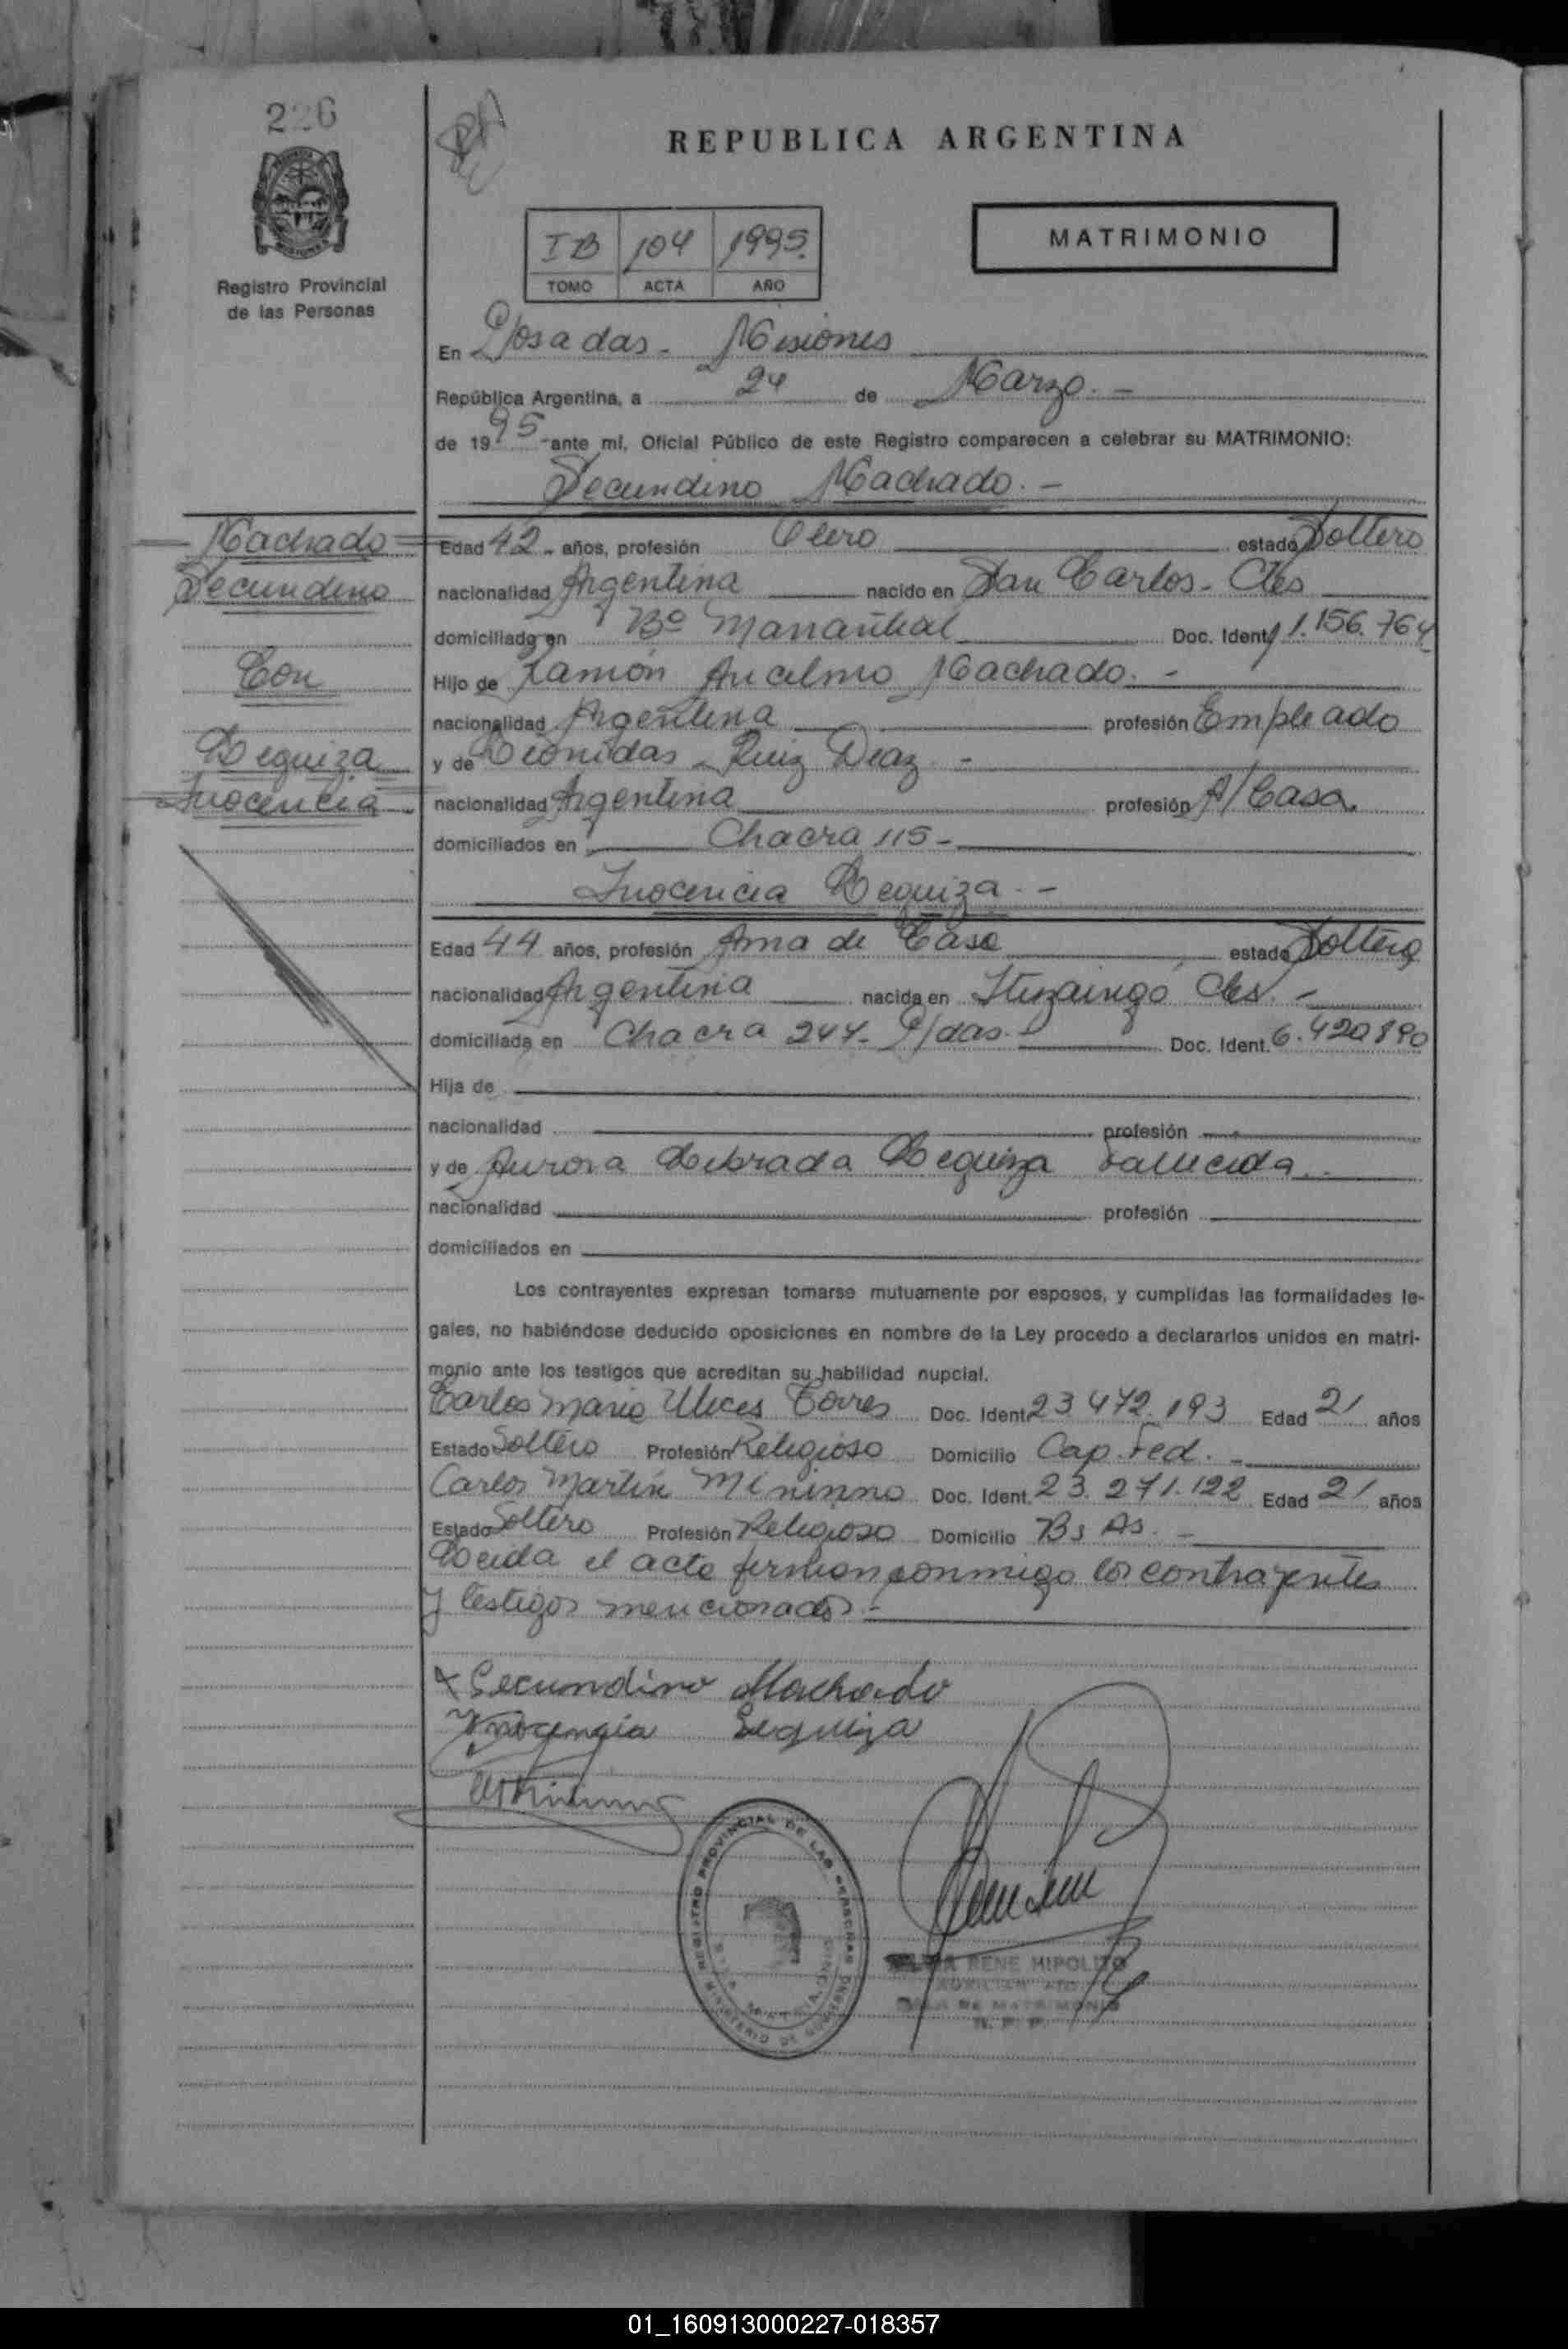 226
REPUBLICA ARGENTINA
Registro Provincial
de las Personas
IB 104 1995.
TOMO ACTA AÑO
MATRIMONIO
En Posadas - Misiones
República Argentina, a 24 de Marzo. -
de 1995 ante mí, Oficial Público de este Registro comparecen a celebrar su MATRIMONIO:
Secundino Machado. -
Machado
Secundino
Con
Lequiza
Inocencia
Edad 42 - años, profesión Olero estado Soltero
nacionalidad Argentina nacido en San Carlos - Ctes
domiciliado en Bº Manantial Doc. Ident. 11.156.764
Hijo de Ramón Ancelmo Machado. -
nacionalidad Argentina profesión Empleado
y de Leonidas Ruiz Diaz -
nacionalidad Argentina profesión A/Casa.
domiciliados en Chacra 115 -
Inocencia Lequiza. -
Edad 44 años, profesión Ama de Casa estado Soltera
nacionalidad Argentina nacida en Ituzaingó Ctes. -
domiciliada en Chacra 247 - P/das. - Doc. Ident. 6.420890
Hija de
nacionalidad profesión
y de Aurora Librada Lequiza Fallecida.
nacionalidad profesión
domiciliados en
Los contrayentes expresan tomarse mutuamente por esposos, y cumplidas las formalidades le-
gales, no habiéndose deducido oposiciones en nombre de la Ley procedo a declararlos unidos en matri-
monio ante los testigos que acreditan su habilidad nupcial.
Carlos Maria Ulices Torres Doc. Ident. 23 472.193 Edad 21 años
Estado Soltero Profesión Religioso Domicilio Cap. Fed. -
Carlos Martín Mininno Doc. Ident. 23.271.122 Edad 21 años
Estado Soltero Profesión Religioso Domicilio Bs As. -
Leida el acta firman conmigo los contrayentes
y testigos mencionados. -
Secundino Machado
Inocencia Lequiza
REGISTRO PROVINCIAL DE LAS PERSONAS
MINISTERIO DE GOBIERNO
RENE HIPOLITO
DE MATRIMONIO
R. P. P.
01_160913000227-018357